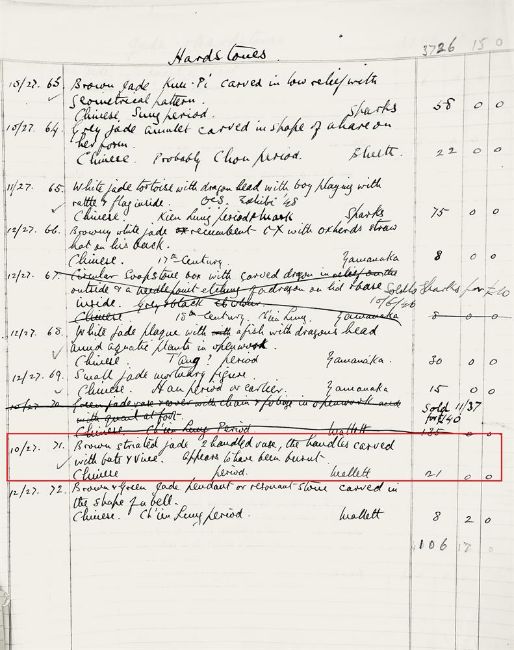 Hardstones.
3726 15 0
10/27. 63. Brown Jade Kuei-Pi carved in low relief with
✓ Geometrical pattern.
Chinese, Sung period. Sparks 58 0 0
10/27. 64. Grey Jade amulet carved in shape of a hare on
her form.
Chinese. Probably Chou period. Bluett. 22 0 0
11/27. 65. White jade tortoise with dragon head with boy playing with
rattle & flag inside. OCS. Exhibit '48
✓ Chinese. Kien Lung period & mark Sparks 75 0 0
12/27. 66. Browny white jade recumbent ox with oxherds straw
hat on his back.
Chinese. 17th Century. Yamanaka 8 0 0
12/27. 67. Circular Soapstone box with carved dragon in relief on the
outside & a needlepoint etching of a dragon on lid & base Sold to Sparks for £40
inside. Grey & black 10/6/26
Chinese 18th Century. Ch'ien Lung. Yamanaka 8 0 0
12/27. 68. White Jade plaque with a fish with dragons head
amid aquatic plants in openwork.
✓ Chinese. T'ang? period Yamanaka. 30 0 0
12/27. 69. Small jade mortuary figure
✓ Chinese. Han period or earlier. Yamanaka 15 0 0
10/27 70. Green jade vase & cover with chain & foliage in openwork and Sold 11/37
with quail at foot. for £40
Chinese. Ch'ien Lung Period Mallett 135 0 0
10/27. 71. Brown striated jade 2 handled vase, the handles carved
✓ with bats & vine. Appears to have been burnt
Chinese period. Mallett 21 0 0
12/27. 72. Brown & Green Jade pendant or resonant stone carved in
the shape of a bell.
Chinese. Ch'ien Lung period. Mallett 8 2 0
106 17 0